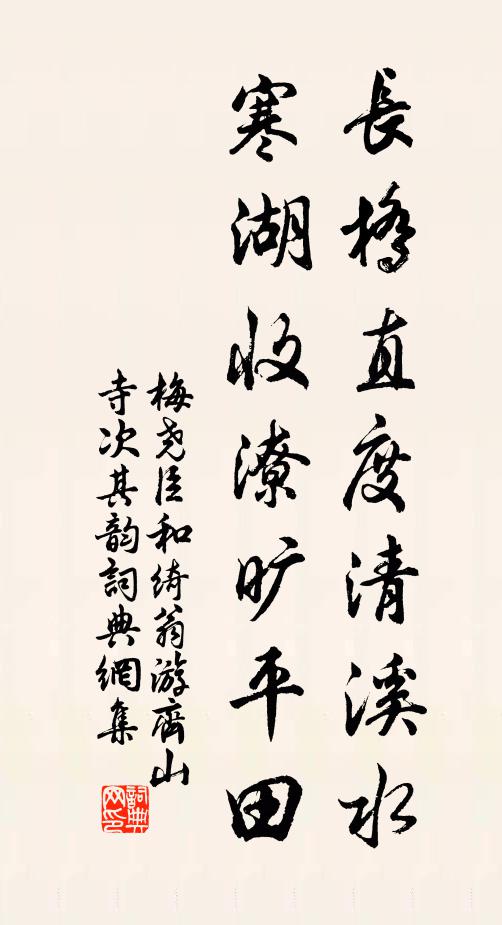 長橋直度清溪水
寒湖收潦旷平田
梅尧臣和绮翁游齊山
寺次其韵詞典網集
詞典
网印